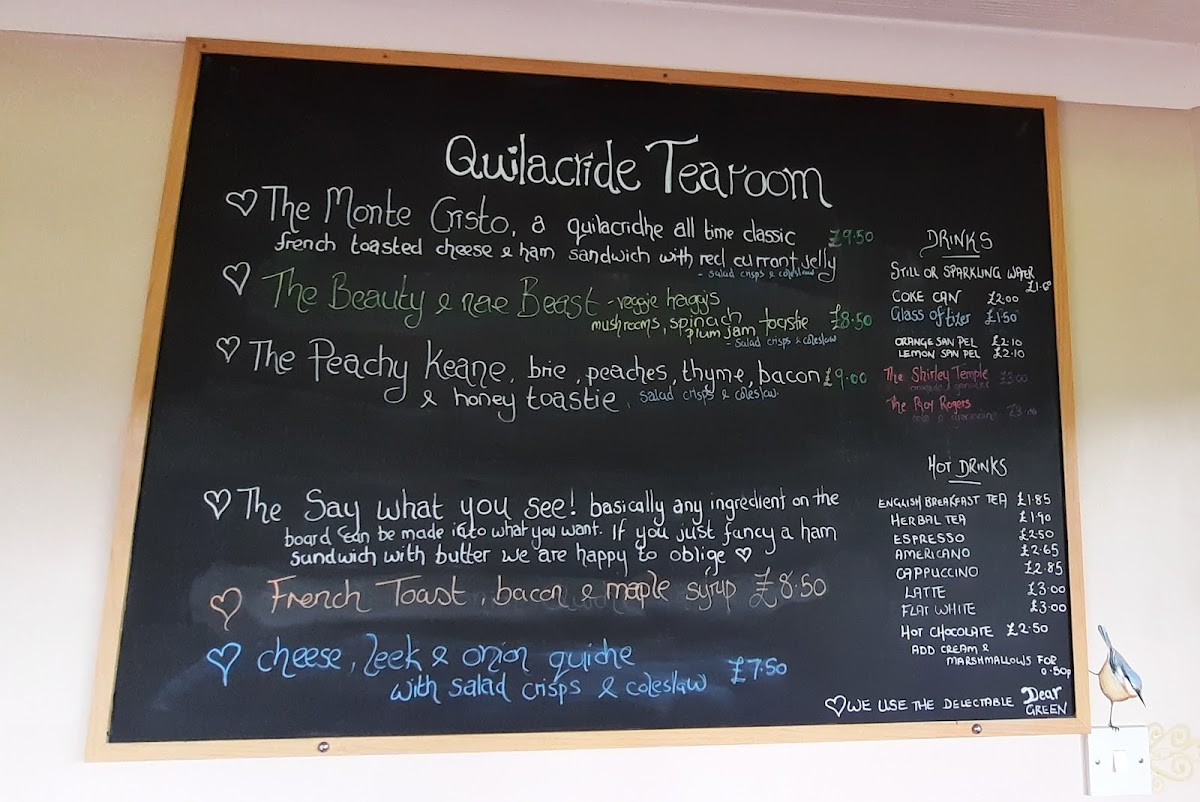 Quilacride Tearoom
The Monte Cristo, a quilacridhe all time classic £9.50
french toasted cheese & ham sandwich with red currant jelly
- salad crisps & coleslaw
The Beauty & nae Beast - veggie haggis
mushrooms, spinach
plum jam toastie £8.50
- salad crisps & coleslaw
The Peachy Keane, brie, peaches, thyme, bacon £9.00
& honey toastie, salad crisps & coleslaw.
The Say what you see! basically any ingredient on the
board can be made into what you want. If you just fancy a ham
sandwich with butter we are happy to oblige
French Toast, bacon & maple syrup £8.50
cheese, leek & onion quiche
with salad crisps & coleslaw £7.50
DRINKS
STILL OR SPARKLING WATER
COKE CAN £2.00
Glass of fizer £1.50
ORANGE SAN PEL £2.10
LEMON SAN PEL £2.10
The Shirley Temple
£3.00
The Roy Rogers
HOT DRINKS
ENGLISH BREAKFAST TEA £1.85
HERBAL TEA £1.90
ESPRESSO £2.50
AMERICANO £2.65
CAPPUCCINO £2.85
LATTE £3.00
FLAT WHITE £3.00
HOT CHOCOLATE £2.50
ADD CREAM &
MARSHMALLOWS FOR
0.50p
WE USE THE DELECTABLE Dear
GREEN